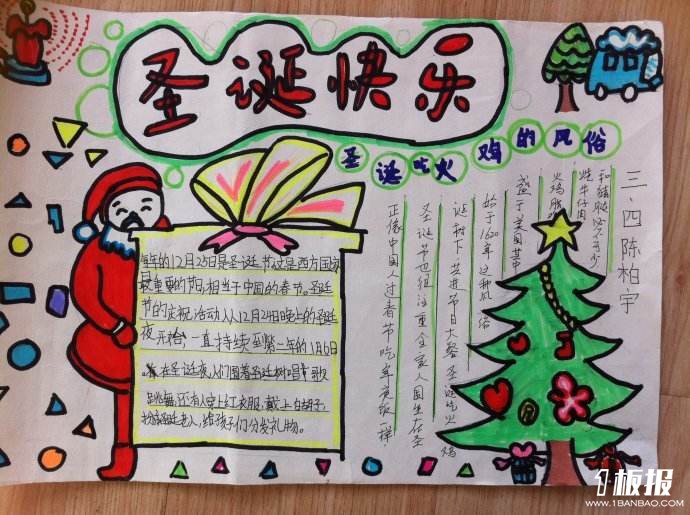 圣诞快乐
圣诞吃火鸡的风俗
每年的12月25日是圣诞节,这是西方国家
最重要的节日,相当于中国的春节。圣诞
节的庆祝活动从12月24日晚上的圣诞
夜开始,一直持续到第二年的1月6日
在圣诞夜人们围着圣诞树唱歌
跳舞,还有人穿上红衣服,戴上白胡子,
扮演圣诞老人,给孩子们分发礼物。
正像中国人过春节吃年夜饭一样
圣诞节也很注重全家人围坐在圣
诞树下,共进节日大餐 圣诞吃火鸡
始于1620年 这种风俗
盛于美国 其中
火鸡
炖牛仔肉
和
三、四 陈柏宇
1板报
WWW.1BANBAO.COM